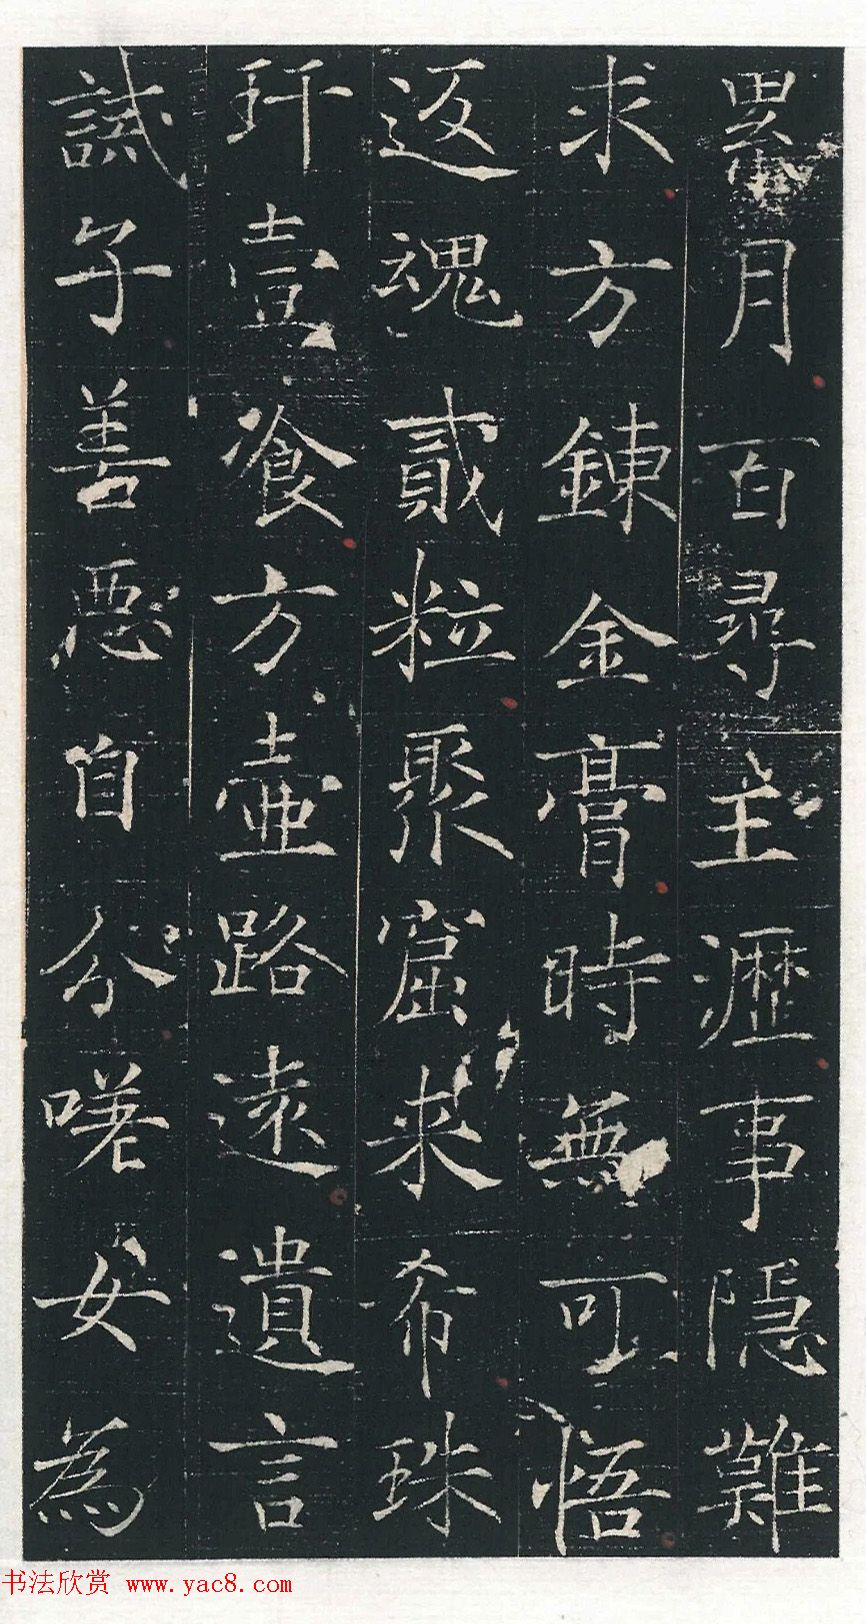 累月百尋主瀝事隱難
求方鍊金膏時無可悟
返魂貳粒聚窟來希珠
玕壹飡方壺路遠遺言
誡子善惡自分嗟女為
书法欣赏 www.yac8.com